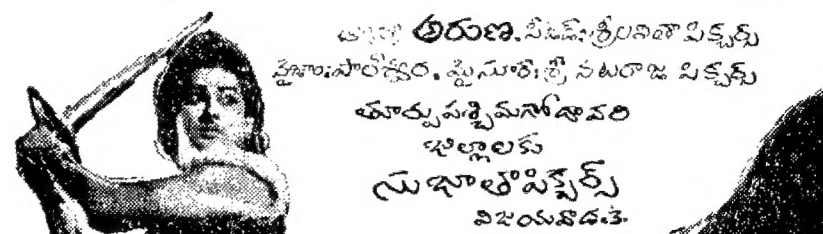 అరుణ. సీడెడ్: శ్రీలలితా పిక్చర్సు
నైజాం: పాలేశ్వర. మైసూర్: శ్రీ నటరాజ పిక్చర్సు
తూర్పుపశ్చిమగోదావరి
జిల్లాలకు
సుజాతాపిక్చర్స్
విజయవాడ.2.